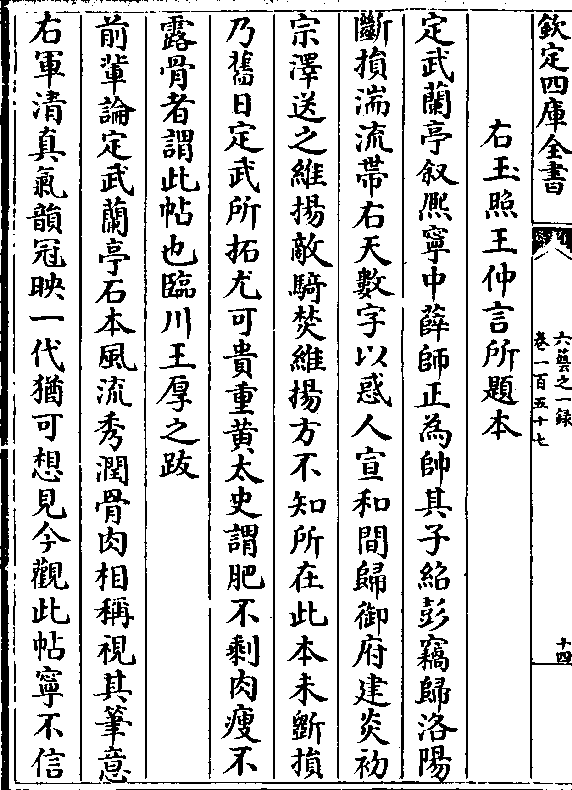 欽定四庫全書
六藝之一録
卷一百五十七
十四
右玉照王仲言所題本
定武蘭亭叙熈寧中薛師正為帥其子紹彭竊歸洛陽
斷損湍流帯右天數字以惑人宣和間歸御府建炎初
宗澤送之維揚敵騎焚維揚方不知所在此本未斷損
乃舊日定武所拓尤可貴重黄太史謂肥不剩肉瘦不
露骨者謂此帖也臨川王厚之跋
前輩論定武蘭亭石本風流秀潤骨肉相稱視其筆意
右軍清真氣韻冠映一代猶可想見今觀此帖寧不信